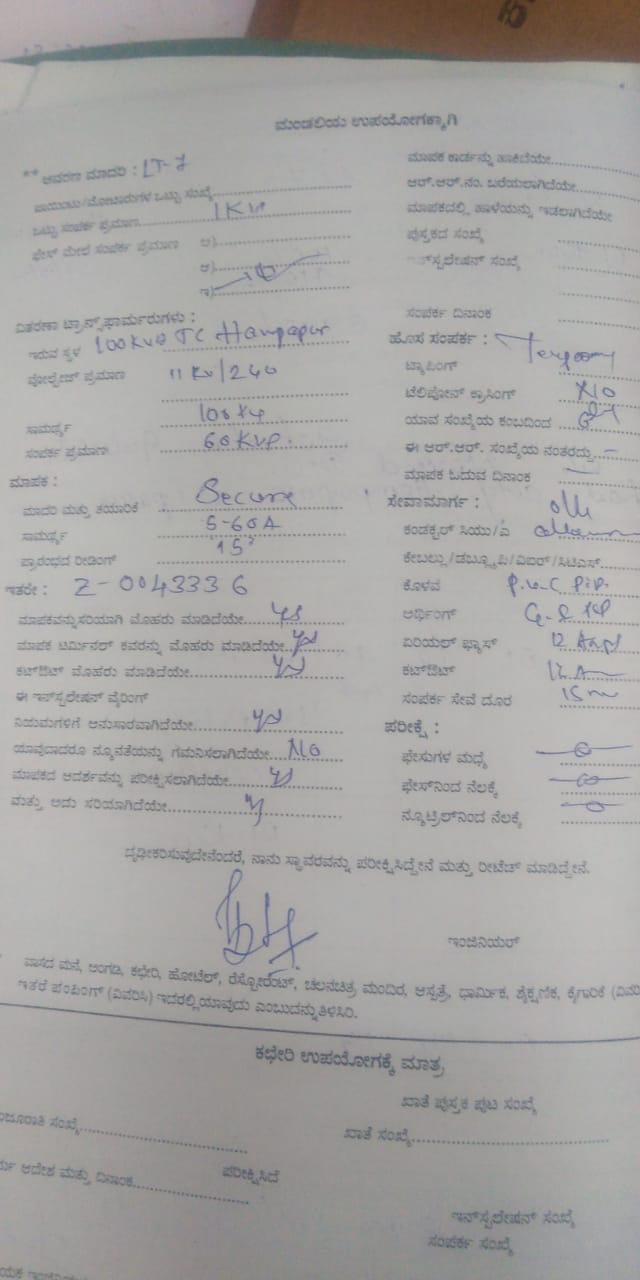 ಮಂಡಲಿಯ ಉಪಯೋಗಕ್ಕಾಗಿ
** ಆವರಣ ಮಾದರಿ : LT-7
ಪಾಯಿಂಟು/ಮೋಟಾರುಗಳ ಒಟ್ಟು ಸಂಖ್ಯೆ
ಒಟ್ಟು ಸಂಪರ್ಕ ಪ್ರಮಾಣ 1KW
ಫೇಸ್ ಮೇಲೆ ಸಂಪರ್ಕ ಪ್ರಮಾಣ ಅ)
ಆ)
ಇ)
ವಿತರಣಾ ಟ್ರಾನ್ಸ್‌ಫಾರ್ಮರುಗಳು :
ಇರುವ ಸ್ಥಳ 100KVA TC
ವೋಲ್ಟೇಜ್ ಪ್ರಮಾಣ 11 KV/240
ಸಾಮರ್ಥ್ಯ
ಸಂಪರ್ಕ ಪ್ರಮಾಣ
ಮಾಪಕ :
ಮಾದರಿ ಮತ್ತು ತಯಾರಿಕೆ Secure
ಸಾಮರ್ಥ್ಯ 5-60A
ಪ್ರಾರಂಭದ ರೀಡಿಂಗ್ '15'
ಇತರೇ : Z-0043336
ಮಾಪಕವನ್ನು ಸರಿಯಾಗಿ ಮೊಹರು ಮಾಡಿದೆಯೇ yes
ಮಾಪಕ ಟರ್ಮಿನಲ್ ಕವರನ್ನು ಮೊಹರು ಮಾಡಿದೆಯೇ yes
ಕಟ್‌ಔಟ್ ಮೊಹರು ಮಾಡಿದೆಯೇ yes
ಈ ಇನ್‌ಸ್ಟಲೇಷನ್ ವೈರಿಂಗ್
ನಿಯಮಗಳಿಗೆ ಅನುಸಾರವಾಗಿದೆಯೇ yes
ಯಾವುದಾದರೂ ನ್ಯೂನತೆಯನ್ನು ಗಮನಿಸಲಾಗಿದೆಯೇ NO
ಮಾಪಕದ ಆದರ್ಶವನ್ನು ಪರೀಕ್ಷಿಸಲಾಗಿದೆಯೇ yes
ಮತ್ತು ಅದು ಸರಿಯಾಗಿದೆಯೇ
ಮಾಪಕ ಕಾರ್ಡನ್ನು ಹಾಕಿದೆಯೇ
ಆರ್.ಆರ್.ನಂ. ಬರೆಯಲಾಗಿದೆಯೇ
ಮಾಪಕದಲ್ಲಿ ಹಾಳೆಯನ್ನು ಇಡಲಾಗಿದೆಯೇ
ಪುಸ್ತಕದ ಸಂಖ್ಯೆ
ಇನ್‌ಸ್ಟಲೇಷನ್ ಸಂಖ್ಯೆ
ಸಂಪರ್ಕ ದಿನಾಂಕ
ಹೊಸ ಸಂಪರ್ಕ :
ಟ್ಯಾಪಿಂಗ್
ಟೆಲಿಫೋನ್ ಕ್ರಾಸಿಂಗ್ NO
ಯಾವ ಸಂಖ್ಯೆಯ ಕಂಬದಿಂದ
ಈ ಆರ್.ಆರ್. ಸಂಖ್ಯೆಯ ನಂತರದ್ದು
ಮಾಪಕ ಓದುವ ದಿನಾಂಕ
ಸೇವಾಮಾರ್ಗ :
ಕಂಡಕ್ಟರ್ ಸಿಯು/ಎ
ಕೇಬಲ್ಲು/ಡಬ್ಲ್ಯೂಪಿ/ವಿಐಆರ್/ಸಿಟಿಎಸ್
ಕೊಳವೆ P.V.C Pip.
ಅರ್ಥಿಂಗ್
ಏರಿಯಲ್ ಫ್ಯೂಸ್ 12
ಕಟ್‌ಔಟ್
ಸಂಪರ್ಕ ಸೇವೆ ದೂರ 15m
ಪರೀಕ್ಷೆ :
ಫೇಸುಗಳ ಮಧ್ಯೆ
ಫೇಸ್‌ನಿಂದ ನೆಲಕ್ಕೆ
ನ್ಯೂಟ್ರಲ್‌ನಿಂದ ನೆಲಕ್ಕೆ
ದೃಢೀಕರಿಸುವುದೇನೆಂದರೆ, ನಾನು ಸ್ಥಾವರವನ್ನು ಪರೀಕ್ಷಿಸಿದ್ದೇನೆ ಮತ್ತು ರೀಟೆಡ್ ಮಾಡಿದ್ದೇನೆ.
ಇಂಜಿನಿಯರ್
ವಾಸದ ಮನೆ, ಅಂಗಡಿ, ಕಛೇರಿ, ಹೋಟೆಲ್, ರೆಸ್ಟೋರೆಂಟ್, ಚಲನಚಿತ್ರ ಮಂದಿರ, ಆಸ್ಪತ್ರೆ, ಧಾರ್ಮಿಕ, ಶೈಕ್ಷಣಿಕ, ಕೈಗಾರಿಕೆ
ಇತರೆ ಪಂಪಿಂಗ್ (ವಿವರಿಸಿ) ಇದರಲ್ಲಿ ಯಾವುದು ಎಂಬುದನ್ನು ತಿಳಿಸಿರಿ.
ಕಛೇರಿ ಉಪಯೋಗಕ್ಕೆ ಮಾತ್ರ
ಖಾತೆ ಪುಸ್ತಕ ಪುಟ ಸಂಖ್ಯೆ
ಸಂಖ್ಯೆ
ಖಾತೆ ಸಂಖ್ಯೆ
ಆದೇಶ ಮತ್ತು ದಿನಾಂಕ
ಪರೀಕ್ಷಿಸಿದೆ
ಇನ್‌ಸ್ಟಲೇಷನ್ ಸಂಖ್ಯೆ
ಸಂಪರ್ಕ ಸಂಖ್ಯೆ